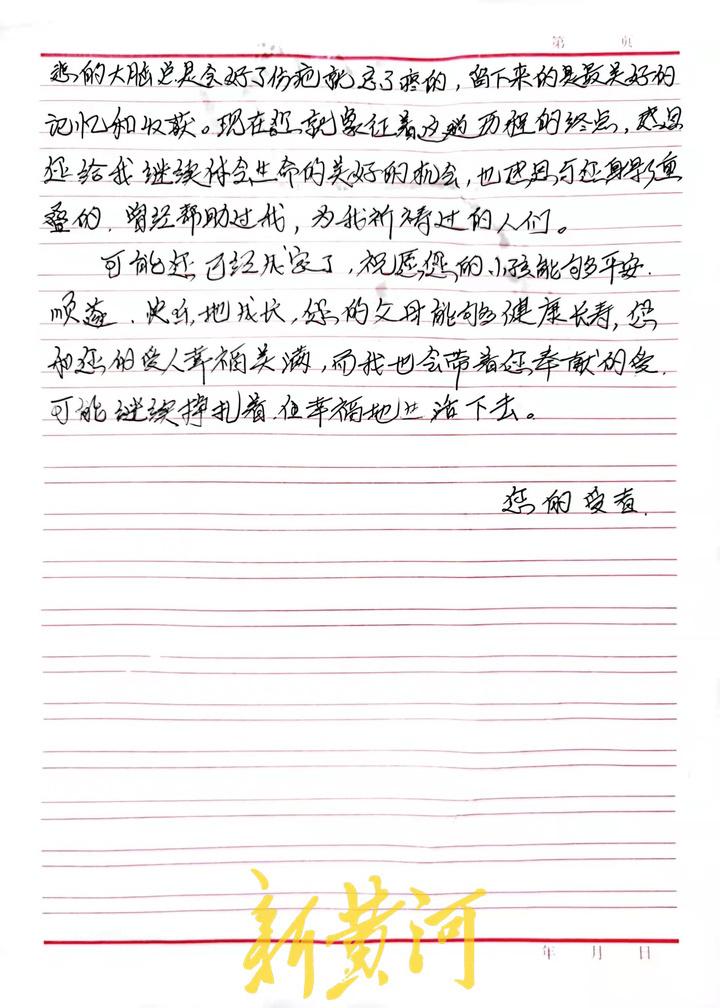 第 页
的大脑总是会好了伤疤就忘了疼的，留下来的是最美好的
记忆和收获。现在 就象征着这趟历程的终点，感恩
您给我继续体会生命的美好的机会，也感恩与您身影重
叠的、曾经帮助过我，为我祈祷过的人们。
可能您已经成家了，祝愿您的小孩能够平安、
顺遂、快乐地成长，您的父母能够健康长寿，您
和您的爱人幸福美满，而我也会带着您奉献的爱，
可能继续挣扎着、但幸福地生活下去。
您的受者.
新黄河
年 月 日